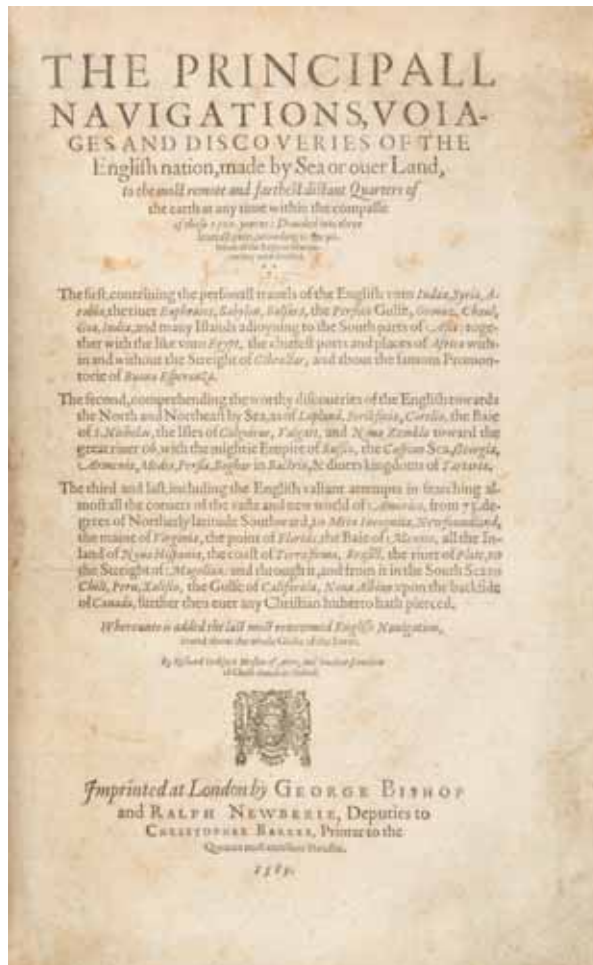 THE PRINCIPALL
NAVIGATIONS, VOIA-
GES AND DISCOVERIES OF THE
English nation, made by Sea or ouer Land,
to the most remote and farthest distant Quarters of
the earth at any time within the compasse
of these 1500. yeeres: Deuided into three
The first, conteining the personall trauels of the English vnto Indæa, Syria, A-
rabia, the riuer Euphrates, Babylon, Balsara, the Persian Gulfe, Ormuz, Chaul,
Goa, India, and many Islands adioyning to the South parts of Asia: toge-
ther with the like vnto Egypt, the chiefest ports and places of Africa with-
in and without the Streight of Gibraltar, and about the famous Promon-
torie of Buona Esperanza.
The second, comprehending the worthy discoueries of the English towards
the North and Northeast by Sea, as of Lapland, Scrikfinia, Corelia, the Baie
of S. Nicholas, the Isles of Colgoieue, Vaigats, and Noua Zembla toward the
great riuer Ob, with the mightie Empire of Russia, the Caspian Sea, Georgia,
Armenia, Media, Persia, Boghar in Bactria, & diuers kingdoms of Tartaria.
The third and last, including the English valiant attempts in searching al-
most all the corners of the vaste and new world of America, from 73. de-
grees of Northerly latitude Southward, to Meta Incognita, Newfoundland,
the maine of Virginia, the point of Florida, the Baie of Mexico, all the In-
land of Noua Hispania, the coast of Terra firma, Brasill, the riuer of Plate, to
the Streight of Magellan: and through it, and from it in the South Sea to
Chili, Peru, Xalisco, the Gulfe of California, Noua Albion vpon the backside
of Canada, further then euer any Christian hitherto hath pierced.
Whereunto is added the last most renowmed English Nauigation,
round about the whole Globe of the Earth.
By Richard Hakluyt Master of Artes, and Student sometime
of Christ-church in Oxford.
Imprinted at London by GEORGE BISHOP
and RALPH NEWBERIE, Deputies to
CHRISTOPHER BARKER, Printer to the
Queenes most excellent Maiestie.
1589.